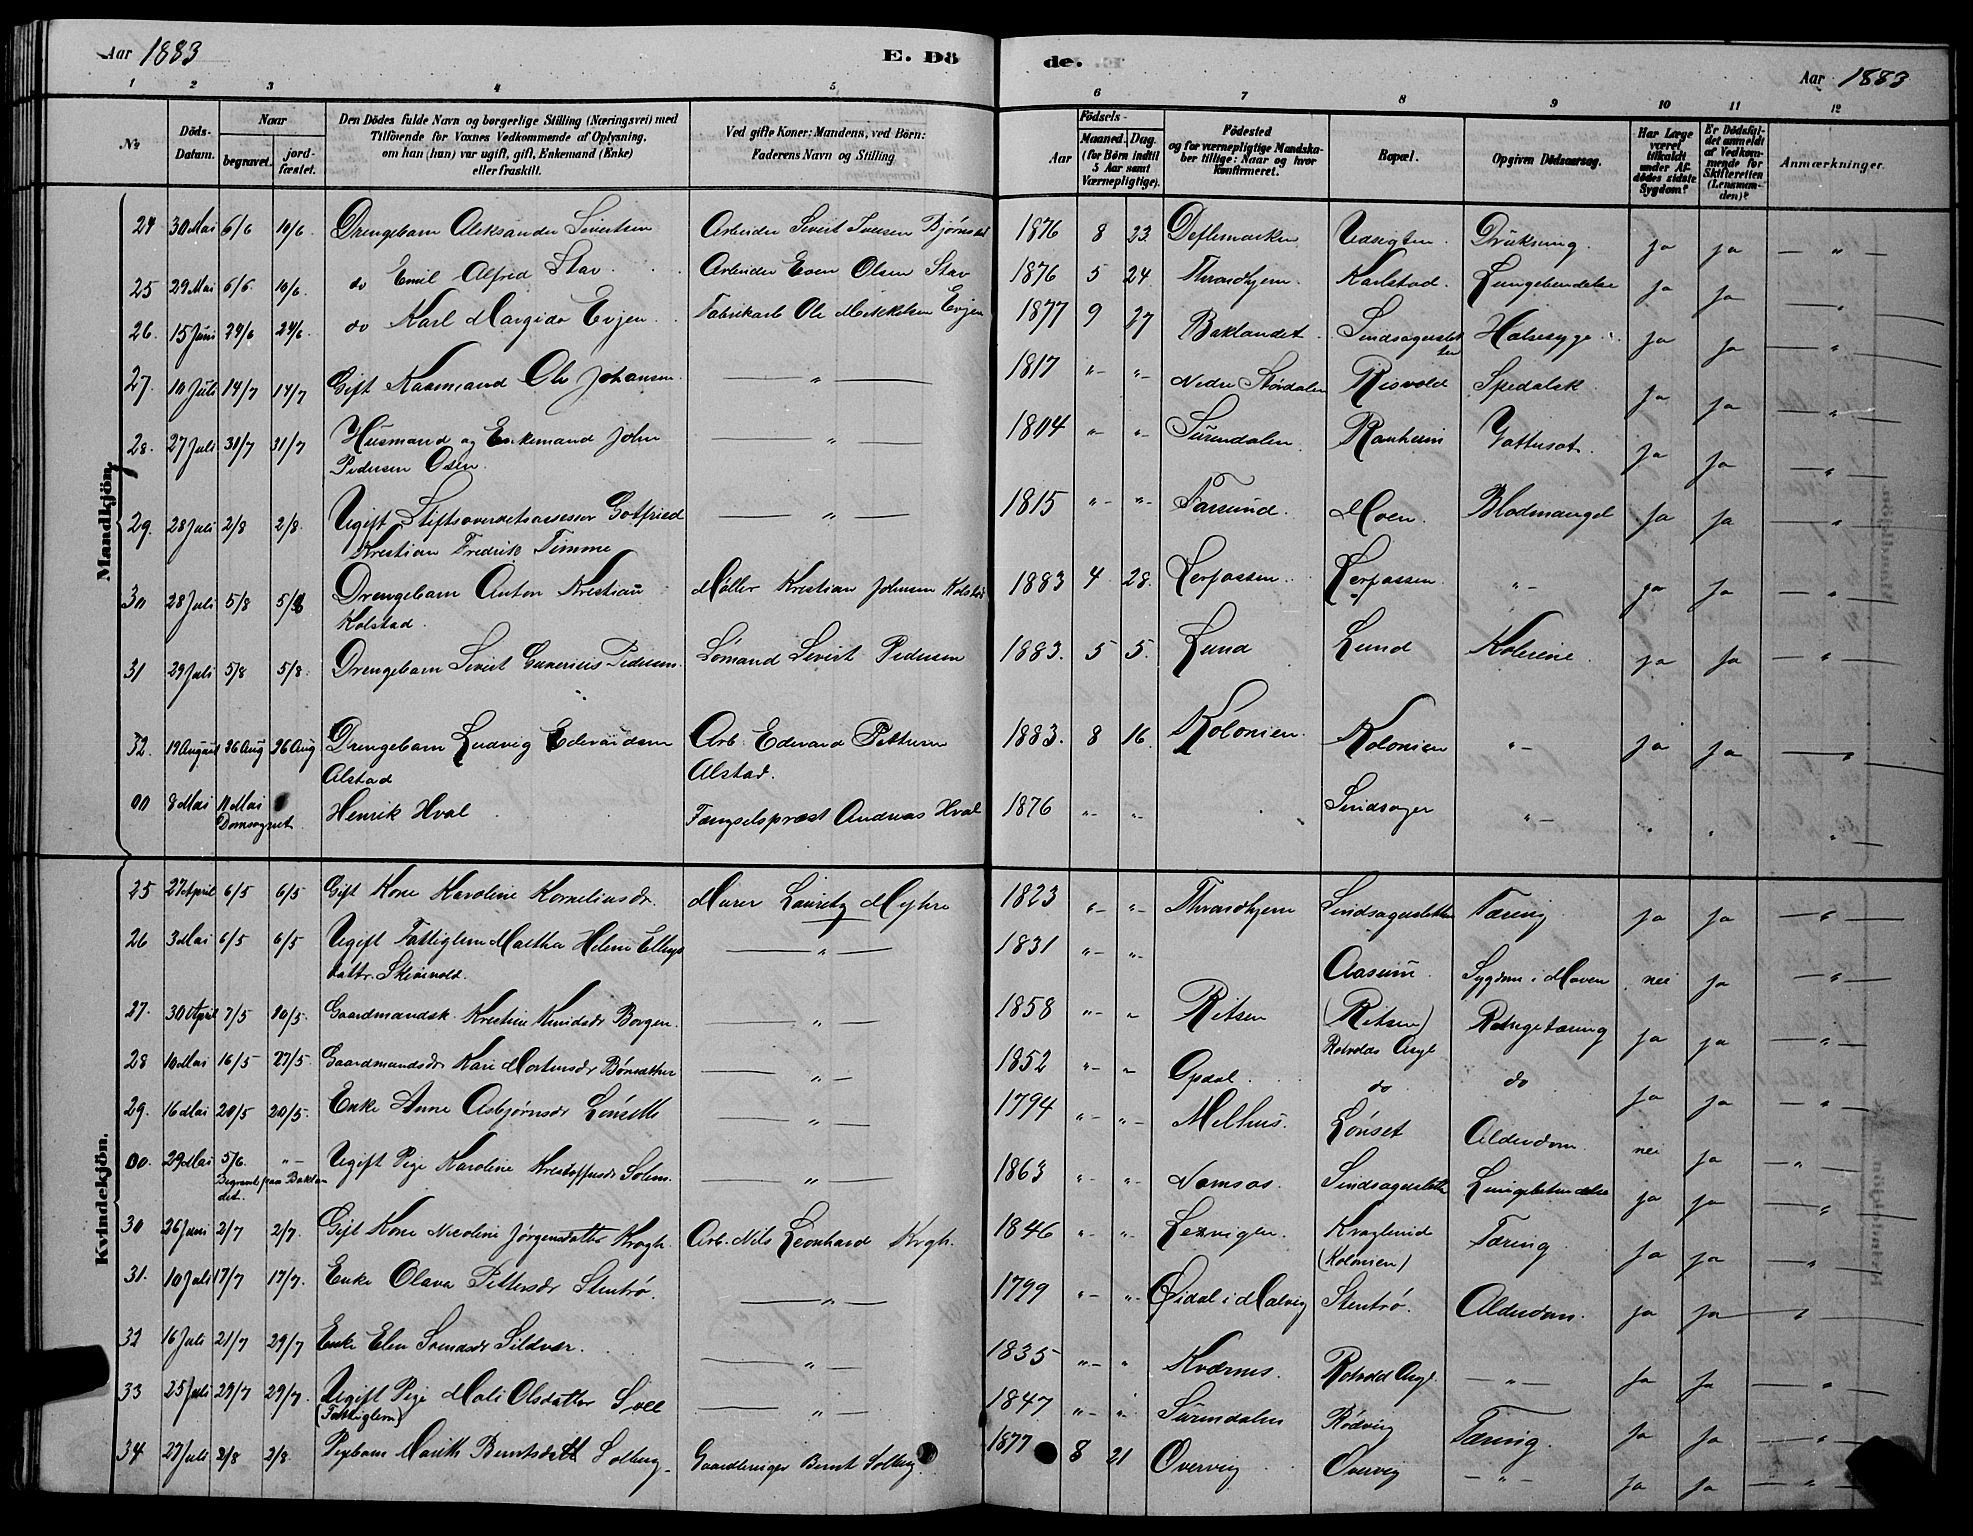 Aar 1883
E. Dö
de.
Aar 1883
1 2 3 4 5 6 7 8 9 10 11 12
No
Döds-Datum.
Naar
begravet.
jord-fæstet.
Den Dödes fulde Navn og borgerlige Stilling (Næringsvei) med
Tilföiende for Voxnes Vedkommende af Oplysning,
om han (hun) var ugift, gift, Enkemand (Enke)
eller fraskilt.
Ved gifte Koner: Mandens, ved Börn:
Faderens Navn og Stilling
Födsels-
Aar
Maaned. Dag.
(for Börn indtil
5 Aar samt
Værnepligtige).
Födested
og for værnepligtige Mandska-
ber tillige: Naar og hvor
Konfirmeret.
Bopæl.
Opgiven Dödsaarsag.
Har Læge
været
tilkaldt
under Af-
dödes sidste
Sygdom?
Er Dödsfal-
det anmeldt
af Vedkom-
mende for
Skifteretten
(Lensman-
den)?
Anmærkninger.
Mandkjön.
24 30 Mai 6/6 10/6. Drengebarn Aleksander Sivertsen Arbeider Sivert Iversen 1876 8 23. Ja ja — " —
25 29 Mai 6/6 10/6. do Emil Alfred Stav. Arbeider Even Olsen Stav 1876 5 24. Throndhjem. Karlstad. Lungebetændelse ja ja — " —
26. 15 Juni 24/6 24/6. do Karl Evjen. Fabrikarb Ole Mikkelsen Evjen 1877 9 27 Baklandet. Halsesyge ja ja — " —
27. 10 Juli 14/7 14/7 Gift Kaarmand Ole Johansen. — " — 1817 "- "- Nedre Stördalen Risvold Spedalsk ja ja — " —
28. 27 Juli 31/7 31/7 Husmand og Enkemand John — " — 1804 "- "- Surendalen Ranheim ja ja — " —
Pedersen Osen.
29. 28 Juli 2/8 2/8. Ugift Stiftsoverretsassessor Gotfried — " — 1815 "- "- Farsund. Moen. Blodmangel ja ja — " —
Kristian Fredrik Timme
30 28 Juli 5/8 5/8 Drengebarn Anton Kristian Möller Kristian Johnsen Kolstad 1883 4 28. Lerfossen. Lerfossen. "- ja ja — " —
Kolstad.
31 29 Juli 5/8 5/8. Drengebarn Sivert Pedersen. Sömand Sivert Pedersen 1883. 5 5. Lund Lund Kolerine. ja ja — " —
32. 19 August 26 Aug 26 Aug Drengebarn Ludvig Edvardsen Arb. Edvard Pettersen 1883. 8 16. Kolonien. Kolonien "- ja ja — " —
Alstad Alstad.
00 8 Mai 11 Mai Henrik Hval Fængselsprest Andreas Hval 1876 "- "- "- " " "
Domsognet
Kvindekjön.
25 27 April 6/5 6/5 Gift Kone Karoline Korneliusdr. Murer Lauritz Myhre 1823 "- "- Throndhjem Tæring ja ja — " —
26 3 Mai 6/5 6/5 Ugift Fattiglem Martha Helene — " — 1831 "- "- Sygdom i Maven nei ja — " —
dattr.
27. 30 April 7/5 10/5. Gaardmandsk. Kristine Knudsdr Borgen. — " — 1858 "- " Ritsen (Ritsen) ja ja — " —
28 10 Mai 16/5 27/5 Gaardmandsdr Kari — " — 1852 "- " Opdal. Rotvolds Asyl do do ja ja — " —
29. 16 Mai 20/5 20/5. Enke Anne Asbjørnsdr — " — 1794 "- "- Melhus. Lönset Alderdom. nei ja — " —
00. 29 Mai 5/6. "- Ugift Pige Karoline Kristoffersdr Solem. — " — 1863 "- "- Namsos. Lungebetændelse ja ja — " —
Begravet fra Baklan
det.
30 26 Juni 2/7 2/7. Gift Kone Nicoline Jørgensdatter Krogh. Arb. Nils Leonhard Krogh. 1846 "- "- Tæring ja ja — " —
(Kolonien)
31. 10 Juli 17/7 17/7. Enke Olava Pettersdr Stentrø. — " — 1799 "- "- i Malvig Stentrø. Alderdom. ja ja — " —
32 16 Juli 21/7 29/7 Enke Elen Sildvær. — " — 1835 "- " Kværnes. Rotvold Asyl. — " — ja ja — " —
33 25 Juli 29/7 29/7. Ugift Pige Mali Olsdatter — " — 1847 "- " Surendalen Rödvig Tæring. ja ja — " —
(Fattiglem)
34 27 Juli 2/8 2/8. Pigebarn Berntsdatt Solberg. Gaardbruger Bernt Solberg. 1877 8 21 Overvig Overvig — " — ja ja — " —